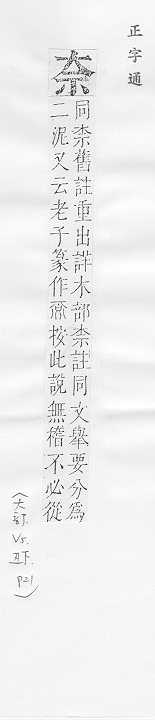 正字通
奈
同柰舊註重出詳木部柰註同文舉要分爲
二泥又云老子篆作𡘽按此說無稽不必從
(大部. V5. 丑下. P21)